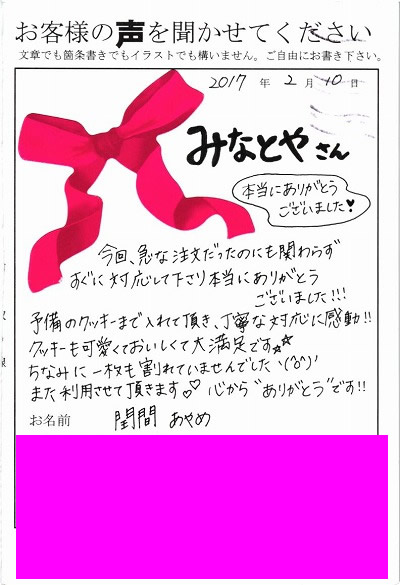 お客様の声を聞かせてください
文章でも箇条書きでもイラストでも構いません。ご自由にお書き下さい。
2017年2月10日
みなとやさん
本当にありがとう
ございました♥
今回、急な注文だったのにも関わらず
すぐに対応して下さり本当にありがとう
ございました!!!
予備のクッキーまで入れて頂き、丁寧な対応に感動!!
クッキーも可愛くておいしくて大満足です☆★
ちなみに一枚も割れていませんでしたヽ(^o^)丿
また利用させて頂きます♡♥ 心から“ありがとう”です!!
お名前 間間 あやめ